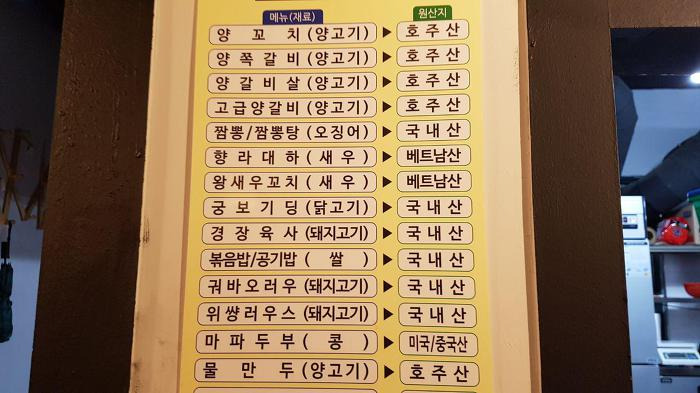 메뉴(재료) 원산지
양꼬치(양고기) ▶ 호주산
양쪽갈비(양고기) ▶ 호주산
양갈비살(양고기) ▶ 호주산
고급양갈비(양고기) ▶ 호주산
짬뽕/짬뽕탕(오징어) ▶ 국내산
향라대하(새우) ▶ 베트남산
왕새우꼬치(새우) ▶ 베트남산
궁보기딩(닭고기) ▶ 국내산
경장육사(돼지고기) ▶ 국내산
볶음밥/공기밥(쌀) ▶ 국내산
궈바오러우(돼지고기) ▶ 국내산
위썅러우스(돼지고기) ▶ 국내산
마파두부(콩) ▶ 미국/중국산
물만두(양고기) ▶ 호주산